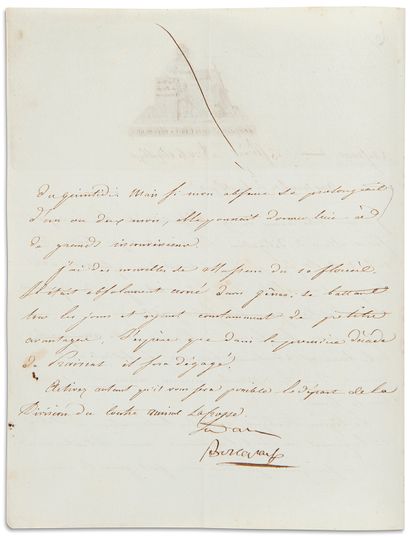 du quintidi. Mais si mon absence se prolongeait
d'un ou deux mois, elle pourrait donner lieu à
de grands inconvéniens.
J'ai des nouvelles de Massena du 10 floréal.
Il était absolument cerné dans Gênes, se battant
tous les jours et ayant constamment de petits
avantages. J'espère que dans la première décade
de Prairial il sera dégagé.
Activez autant qu'il vous sera possible le départ de la
Division du Contre amiral Lacrosse.
Bonaparte